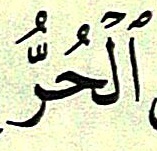 ٱلْحُرُّ